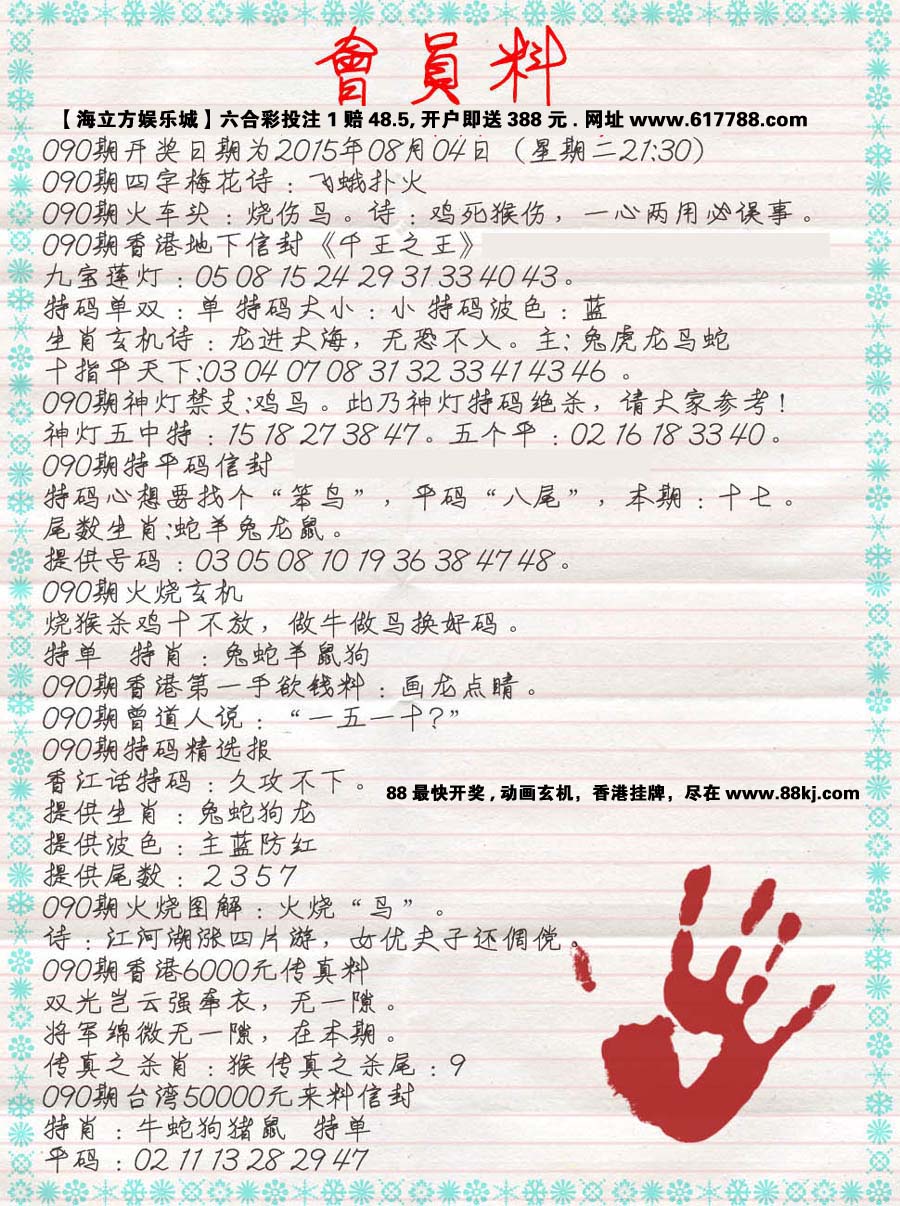 會員料
【海立方娱乐城】六合彩投注1赔48.5,开户即送388元.网址www.617788.com
090期开奖日期为2015年08月04日（星期二21:30）
090期四字梅花诗：飞蛾扑火
090期火车头：烧伤鸟。诗：鸡死猴伤，一心两用必误事。
090期香港地下信封《千王之王》
九宝莲灯：05 08 15 24 29 31 33 40 43。
特码单双：单 特码大小：小 特码波色：蓝
生肖玄机诗：龙进大海，无恐不入。主：兔虎龙鸟蛇
十指平天下:03 04 07 08 31 32 33 41 43 46 。
090期神灯禁支:鸡鸟。此乃神灯特码绝杀，请大家参考！
神灯五中特：15 18 27 38 47。五个平：02 16 18 33 40。
090期特平码信封
特码心想要找个“笨鸟”，平码“八尾”，本期：十七。
尾数生肖:蛇羊兔龙鼠。
提供号码：03 05 08 10 19 36 38 47 48。
090期火烧玄机
烧猴杀鸡十不放，做牛做鸟换好码。
特单 特肖：兔蛇羊鼠狗
090期香港第一手欲钱料：画龙点睛。
090期曾道人说：“一五一十？”
090期特码精选报
香江话特码：久攻不下。
88最快开奖,动画玄机，香港挂牌，尽在www.88kj.com
提供生肖：兔蛇狗龙
提供波色：主蓝防红
提供尾数：2 3 5 7
090期火烧图解：火烧“鸟”。
诗：江河湖涨四片游，女优夫子还倜傥。
090期香港6000元传真料
双光岂云强牵衣，无一隙。
将军绵微无一隙，在本期。
传真之杀肖：猴 传真之杀尾：9
090期台湾50000元来料信封
特肖：牛蛇狗猪鼠 特单
平码：02 11 13 28 29 47